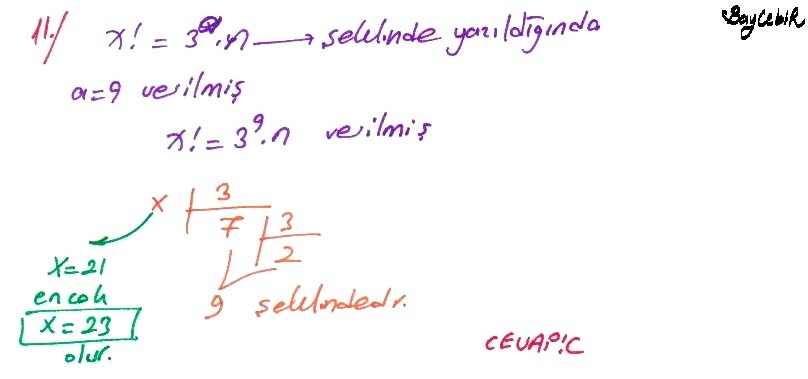 BayCebiR
11./ x! = 3^a.n → şeklinde yazıldığında
a=9 verilmiş
x! = 3^9.n verilmiş
x 3
7 3
2
9 şeklindedir.
x=21
en çok
x = 23
olur.
CEVAP:C